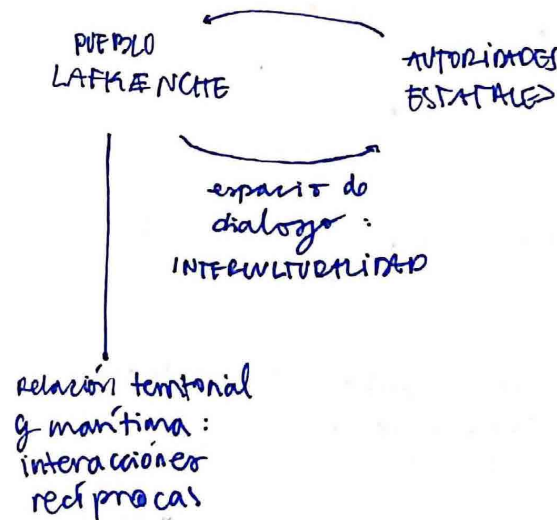 PUEBLO
LAFKENCHE
AUTORIDADES
ESTATALES
espacio de
dialogo :
INTERCULTURALIDAD
relación territorial
y marítima :
interacciones
recíprocas